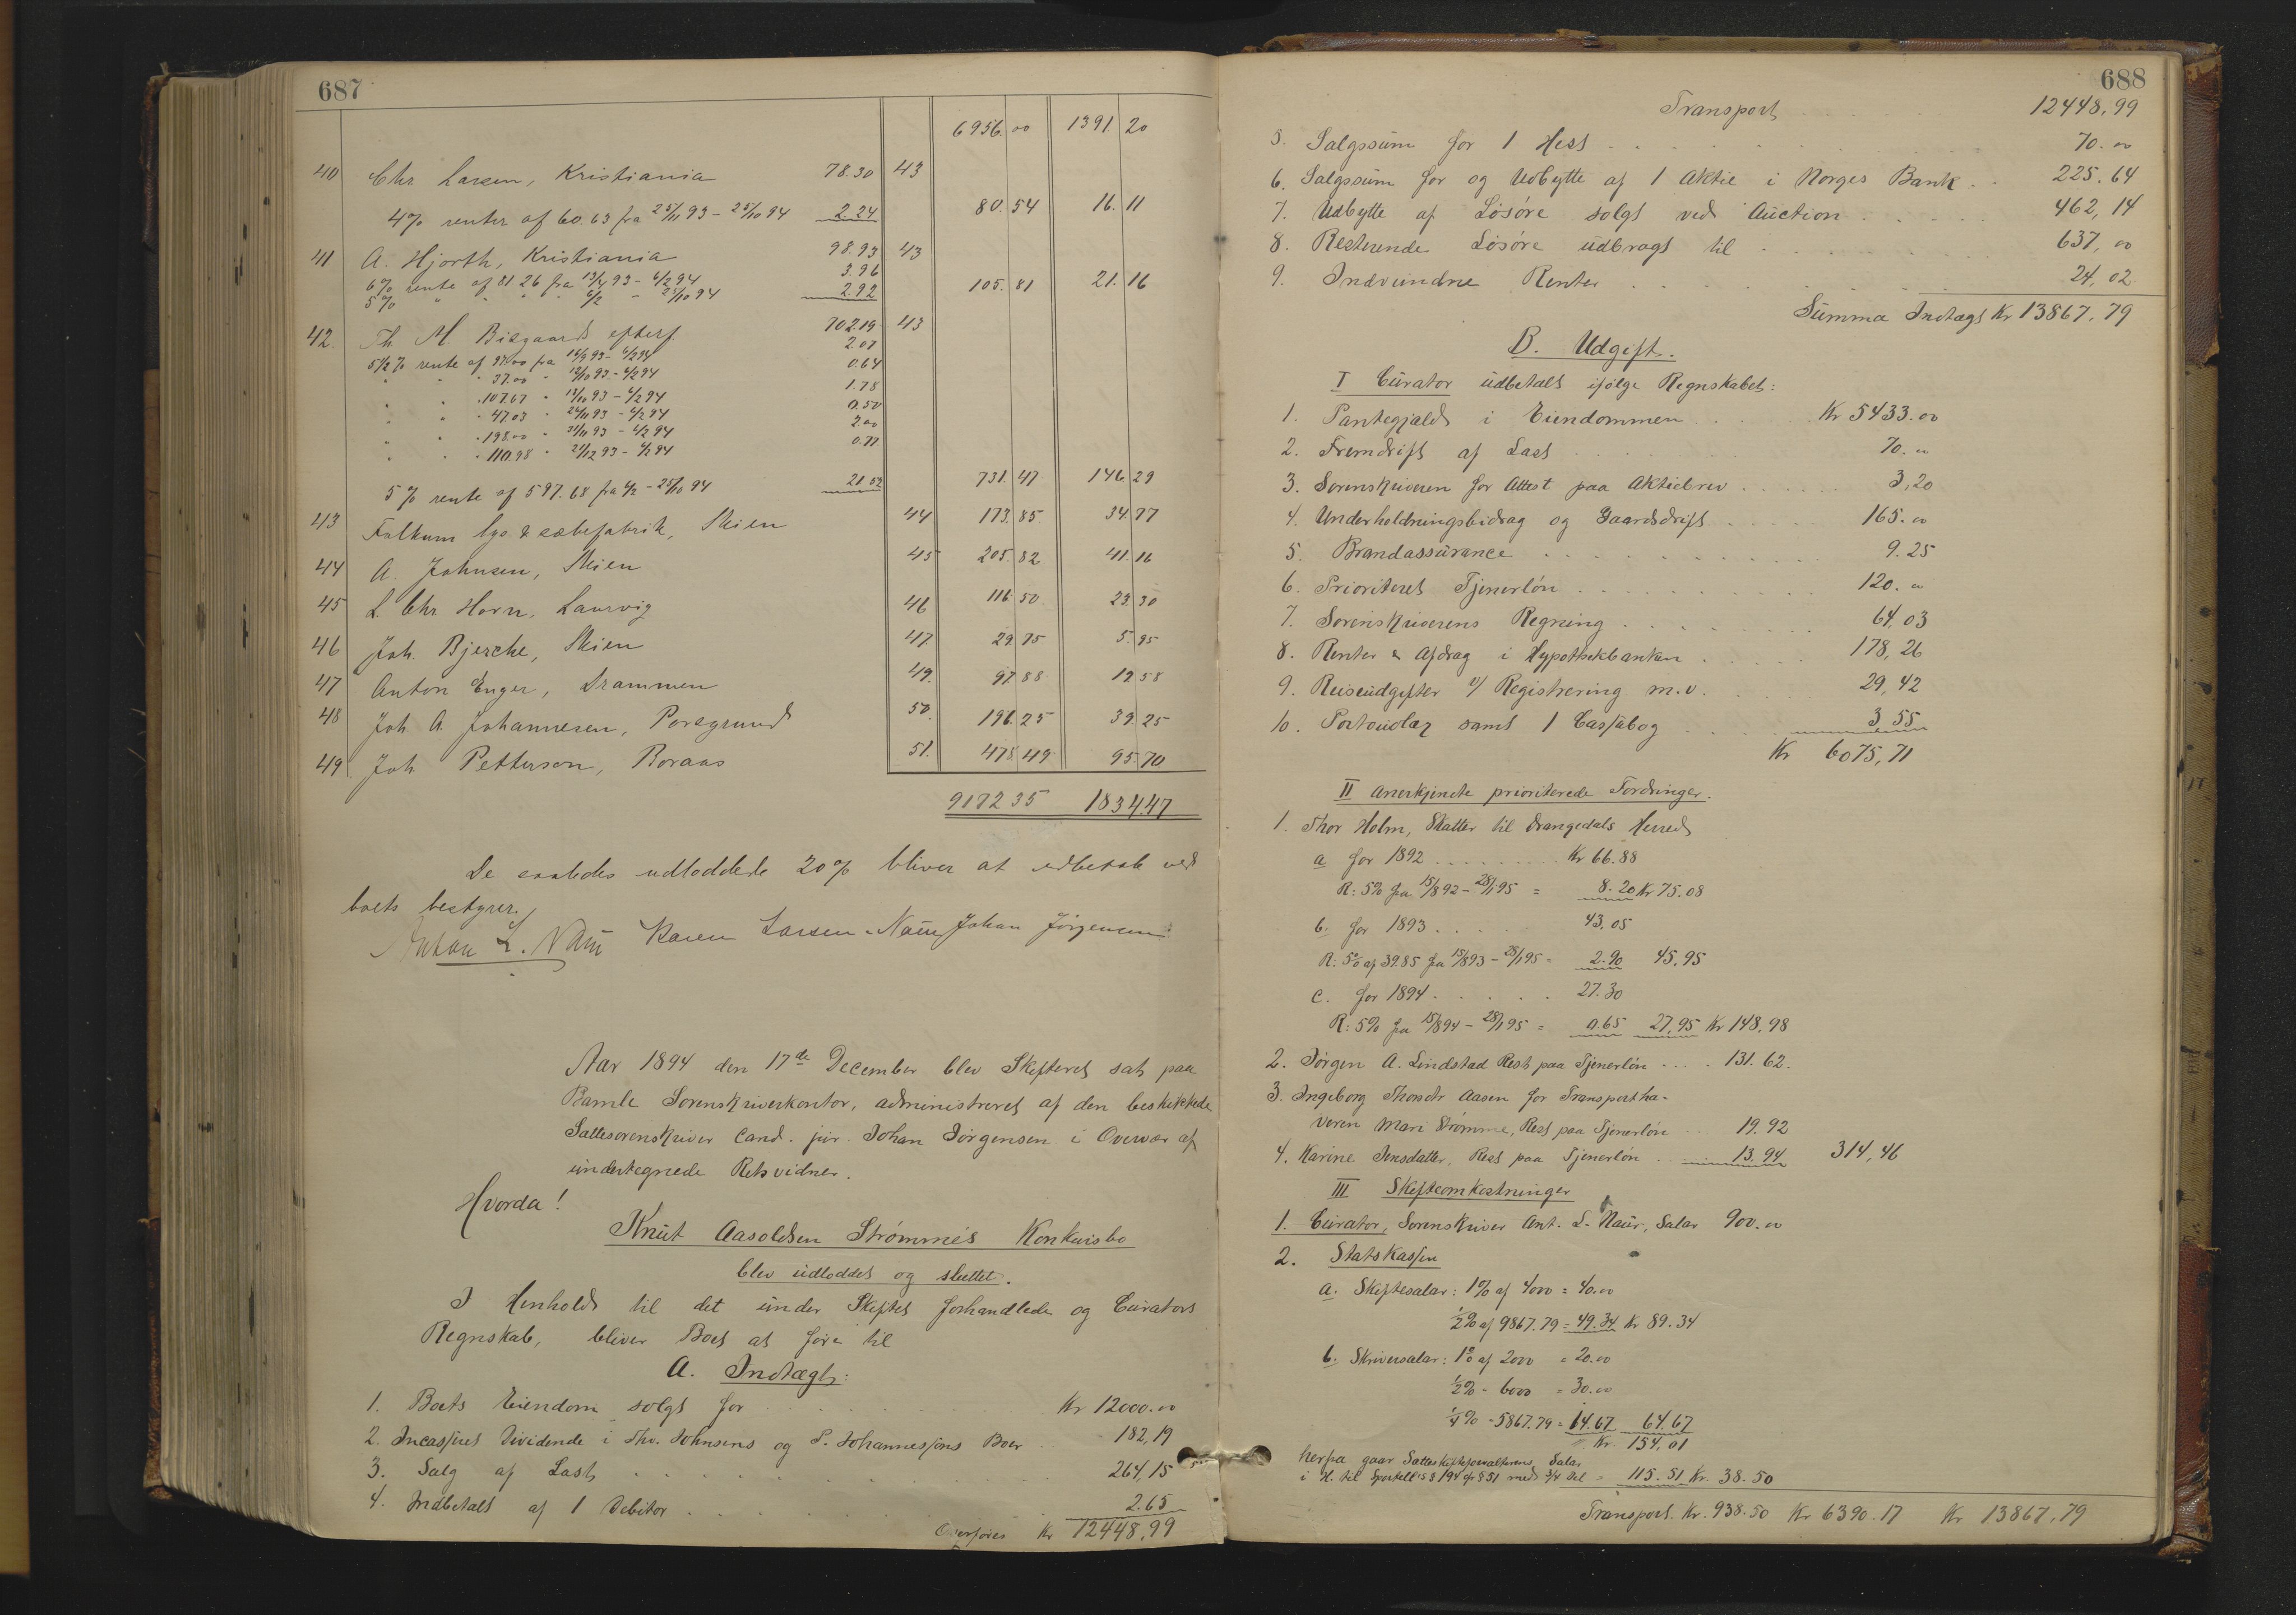 687
6956.00 1391.20
40 Chr. Larsen, Kristiania 78.30 43
4% renter af 60.63 fra 25/11 93 - 25/10 94 2.24 80.54 16.11
41 A. Hjorth, Kristiania 98.93 43
6% rente af 81 26 fra 13/4 93 - 6/2 94 3.96
5% " " " 6/2 - 25/10 94 2.92 105.81 21.16
42. Th. M. Bisgaards efterf. 702.19 43
5 1/2 % rente af fra 16/9 93 - 6/2 94 2.07
" " " 37.00 " 12/10 93 - 6/2 94 0.64
" " " 107.67 " 93 - 6/2 94 1.78
" " " 47.03 " 93 - 6/2 94 0.50
" " " 198.00 " 93 - 6/2 94 2.00
" " " 110.98 " 21/12 93 - 6/2 94 0.77
5 % rente af 597.68 fra 6/2 - 25/10 94 21.52 731.47 146.29
43 Falkum sæbefabrik, Skien 44 173.85 34.77
44 A. Johnsen, Skien 45 205.82 41.16
45 L. Chr. Horn, Laurvig 46 116.50 23.30
46 Joh. Bjerche, Skien 47 29.75 5.95
47 Anton Enger, Drammen 49. 97.88 19.58
48 Joh. A. Johannesen, Porsgrund 50. 196.25 39.25
49 Joh. Petterson, Boraas 51. 478.49 95.70
9172 35 1834.47
De saaledes udloddede 20% bliver at udbetale ved
boets bestyrer.
Anton L. Naur Karen Larsen-Naur Johan Jörgensen
Aar 1894 den 17de December blev Skifteret sat paa
Bamle Sorenskriverkontor, administreret af den beskikkede
Sættesorenskriver Cand. jur. Johan Jörgensen i Overvær af
undertegnede Retsvidner.
Hvorda!
Knut Aasoldsen Strømme's Konkursbo
blev udloddet og sluttet.
I Henhold til det under Skiftet forhandlede og Curators
Regnskab, bliver Boet at före til
A. Indtægt:
1. Boets Eiendom solgt for Kr 12000.00
2. Incasseret Dividende i Thv. Johnsens og P. Johannessens Boer 182,19
3. Salg af Last 264,15
4. Indbetalt af 1 Debitor 2.65
Overføres Kr 12448,99
688
Transport 12448,99
5. Salgssum for 1 Hest 70.00
6. Salgssum for og Udbytte af 1 Aktie i Norges Bank 225.64
7. Udbytte af Lösöre solgt ved Auction 462,14
8. Resterende Lösöre udbragt til 637,00
9. Indvundne Renter 24,02
Summa Indtægt Kr 13867,79
B. Udgift.
I Curator udbetalt ifölge Regnskabet:
1. Pantegjæld i Eiendommen Kr 5433.00
2. Fremdrift af Last 70.00
3. Sorenskriveren for Attest paa Aktiebrev 3,20
4. Underholdningsbidrag og Gaardsdrift 165.00
5. Brandassurance 9.25
6. Prioriteret Tjenerlön 120.00
7. Sorenskriverens Regning 64,03
8. Renter & Afdrag i Hypothekbanken 178,26
9. Reiseudgifter v/ Registrering m.v. 29,42
10. Portoudlæg samt 1 Cassabog 3 55
Kr 6075,71
II Anerkjendte prioriterede Fordringer.
1. Thor Holm, Skatter til Drangedals Herred
a for 1892 Kr 66.88
R: 5% fra 15/8 92 - 28/1 95 = 8.20 Kr 75.08
b. for 1893 43,05
R: 5% af 39.85 fra 15/8 93 - 28/1 95 = 2.90 45,95
c. for 1894 27.30
R: 5% fra 15/8 94 - 28/1 95 = 0.65 27,95 Kr 148,98
2. Jörgen A. Lindstad Rest paa Tjenerlön 131.62.
3. Ingeborg Thorsdtr Aasen for Transportha-
veren Mari Strømme, Rest paa Tjenerlön 19.92
4. Karine Jensdatter, Rest paa Tjenerlön 13.94 314,46
III Skifteomkostninger
1. Curator, Sorenskriver Ant. L. Naur, Salær 900.00
2. Statskassen
a. Skiftesalær: 1% af 4000 = 40.00
1/2% af 9867.79 = 49.34 Kr 89.34
b. Skriversalær: 1% af 2000 = 20.00
1/2% - 6000 = 30.00
1/4% - 5867.79 = 14.67 64.67
Kr. 154,01
herfra gaar Sætteskifteforvalterens Salær
i H. til Sportell's § 194 jfr § 51 med 3/4 Del = 115.51 Kr. 38.50
Transport. Kr. 938.50 Kr 6390.17 Kr 13867,79